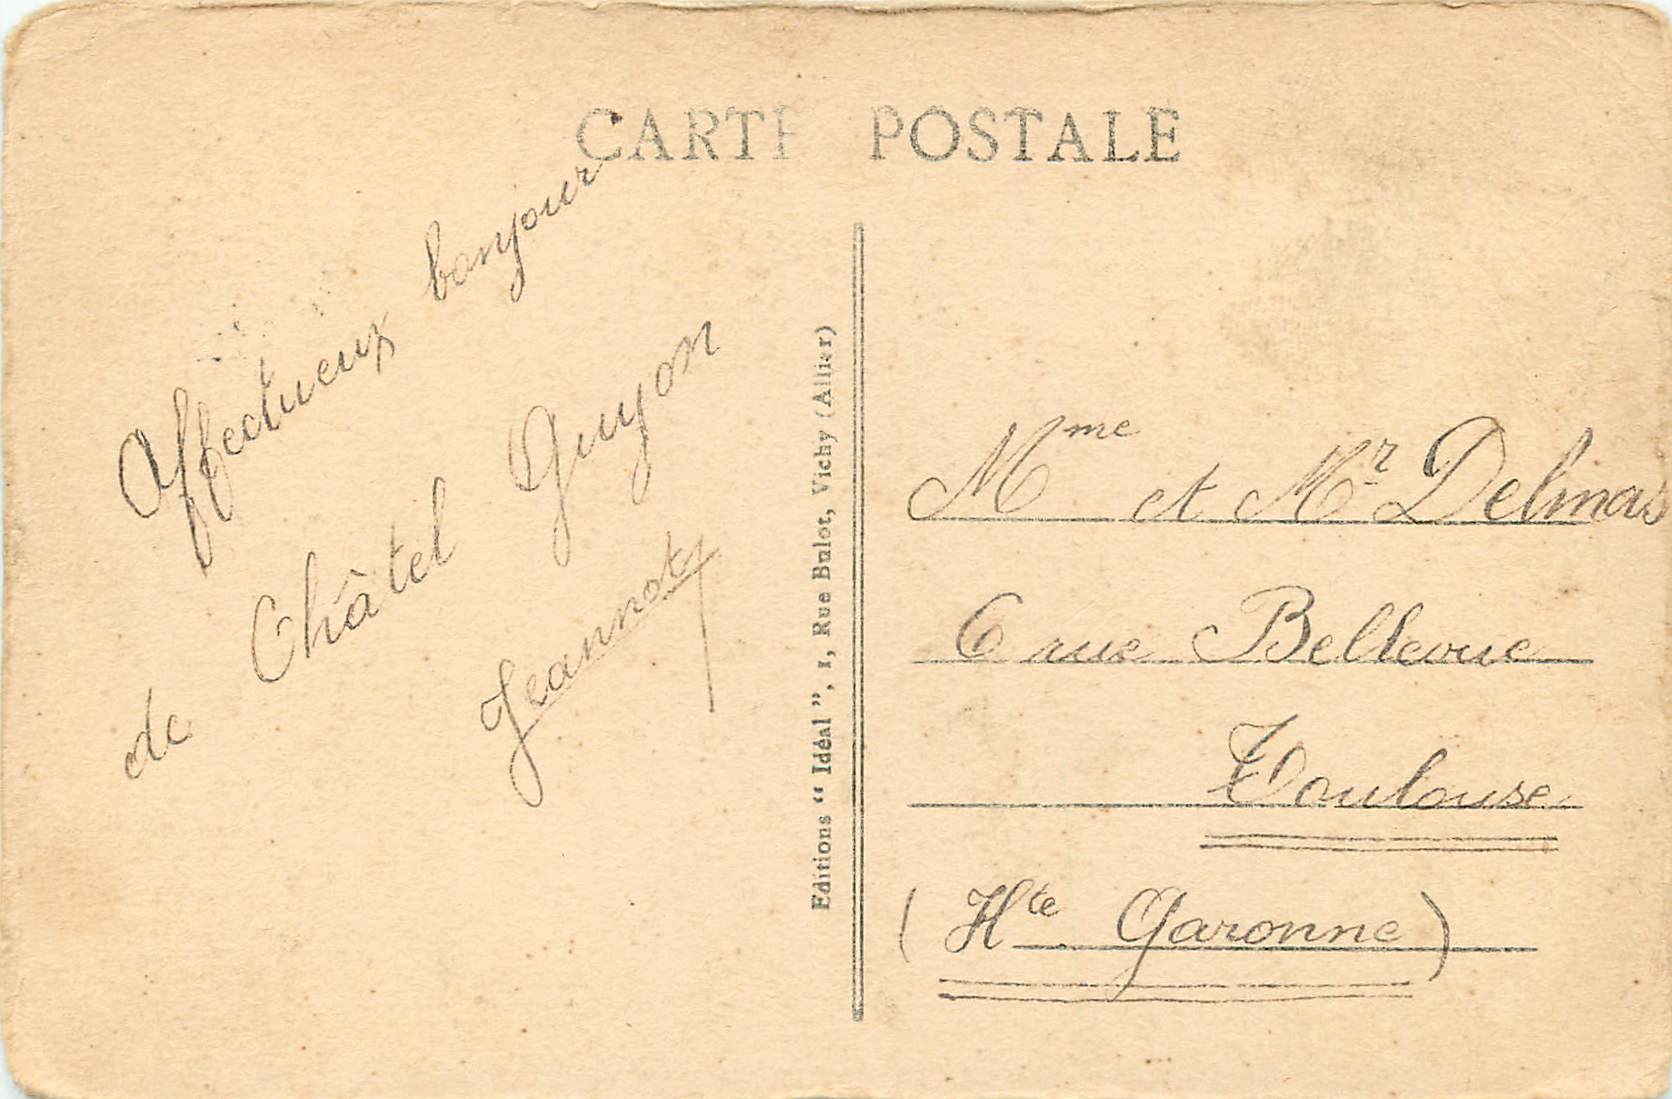 CARTE POSTALE
Affectueux bonjour
de Châtel Guyon
Jeannot
Editions “ Idéal ”, 1, Rue Bulot, Vichy (Allier)
Mme et Mr Delmas
6 rue Bellevue
Toulouse
(Hte Garonne)